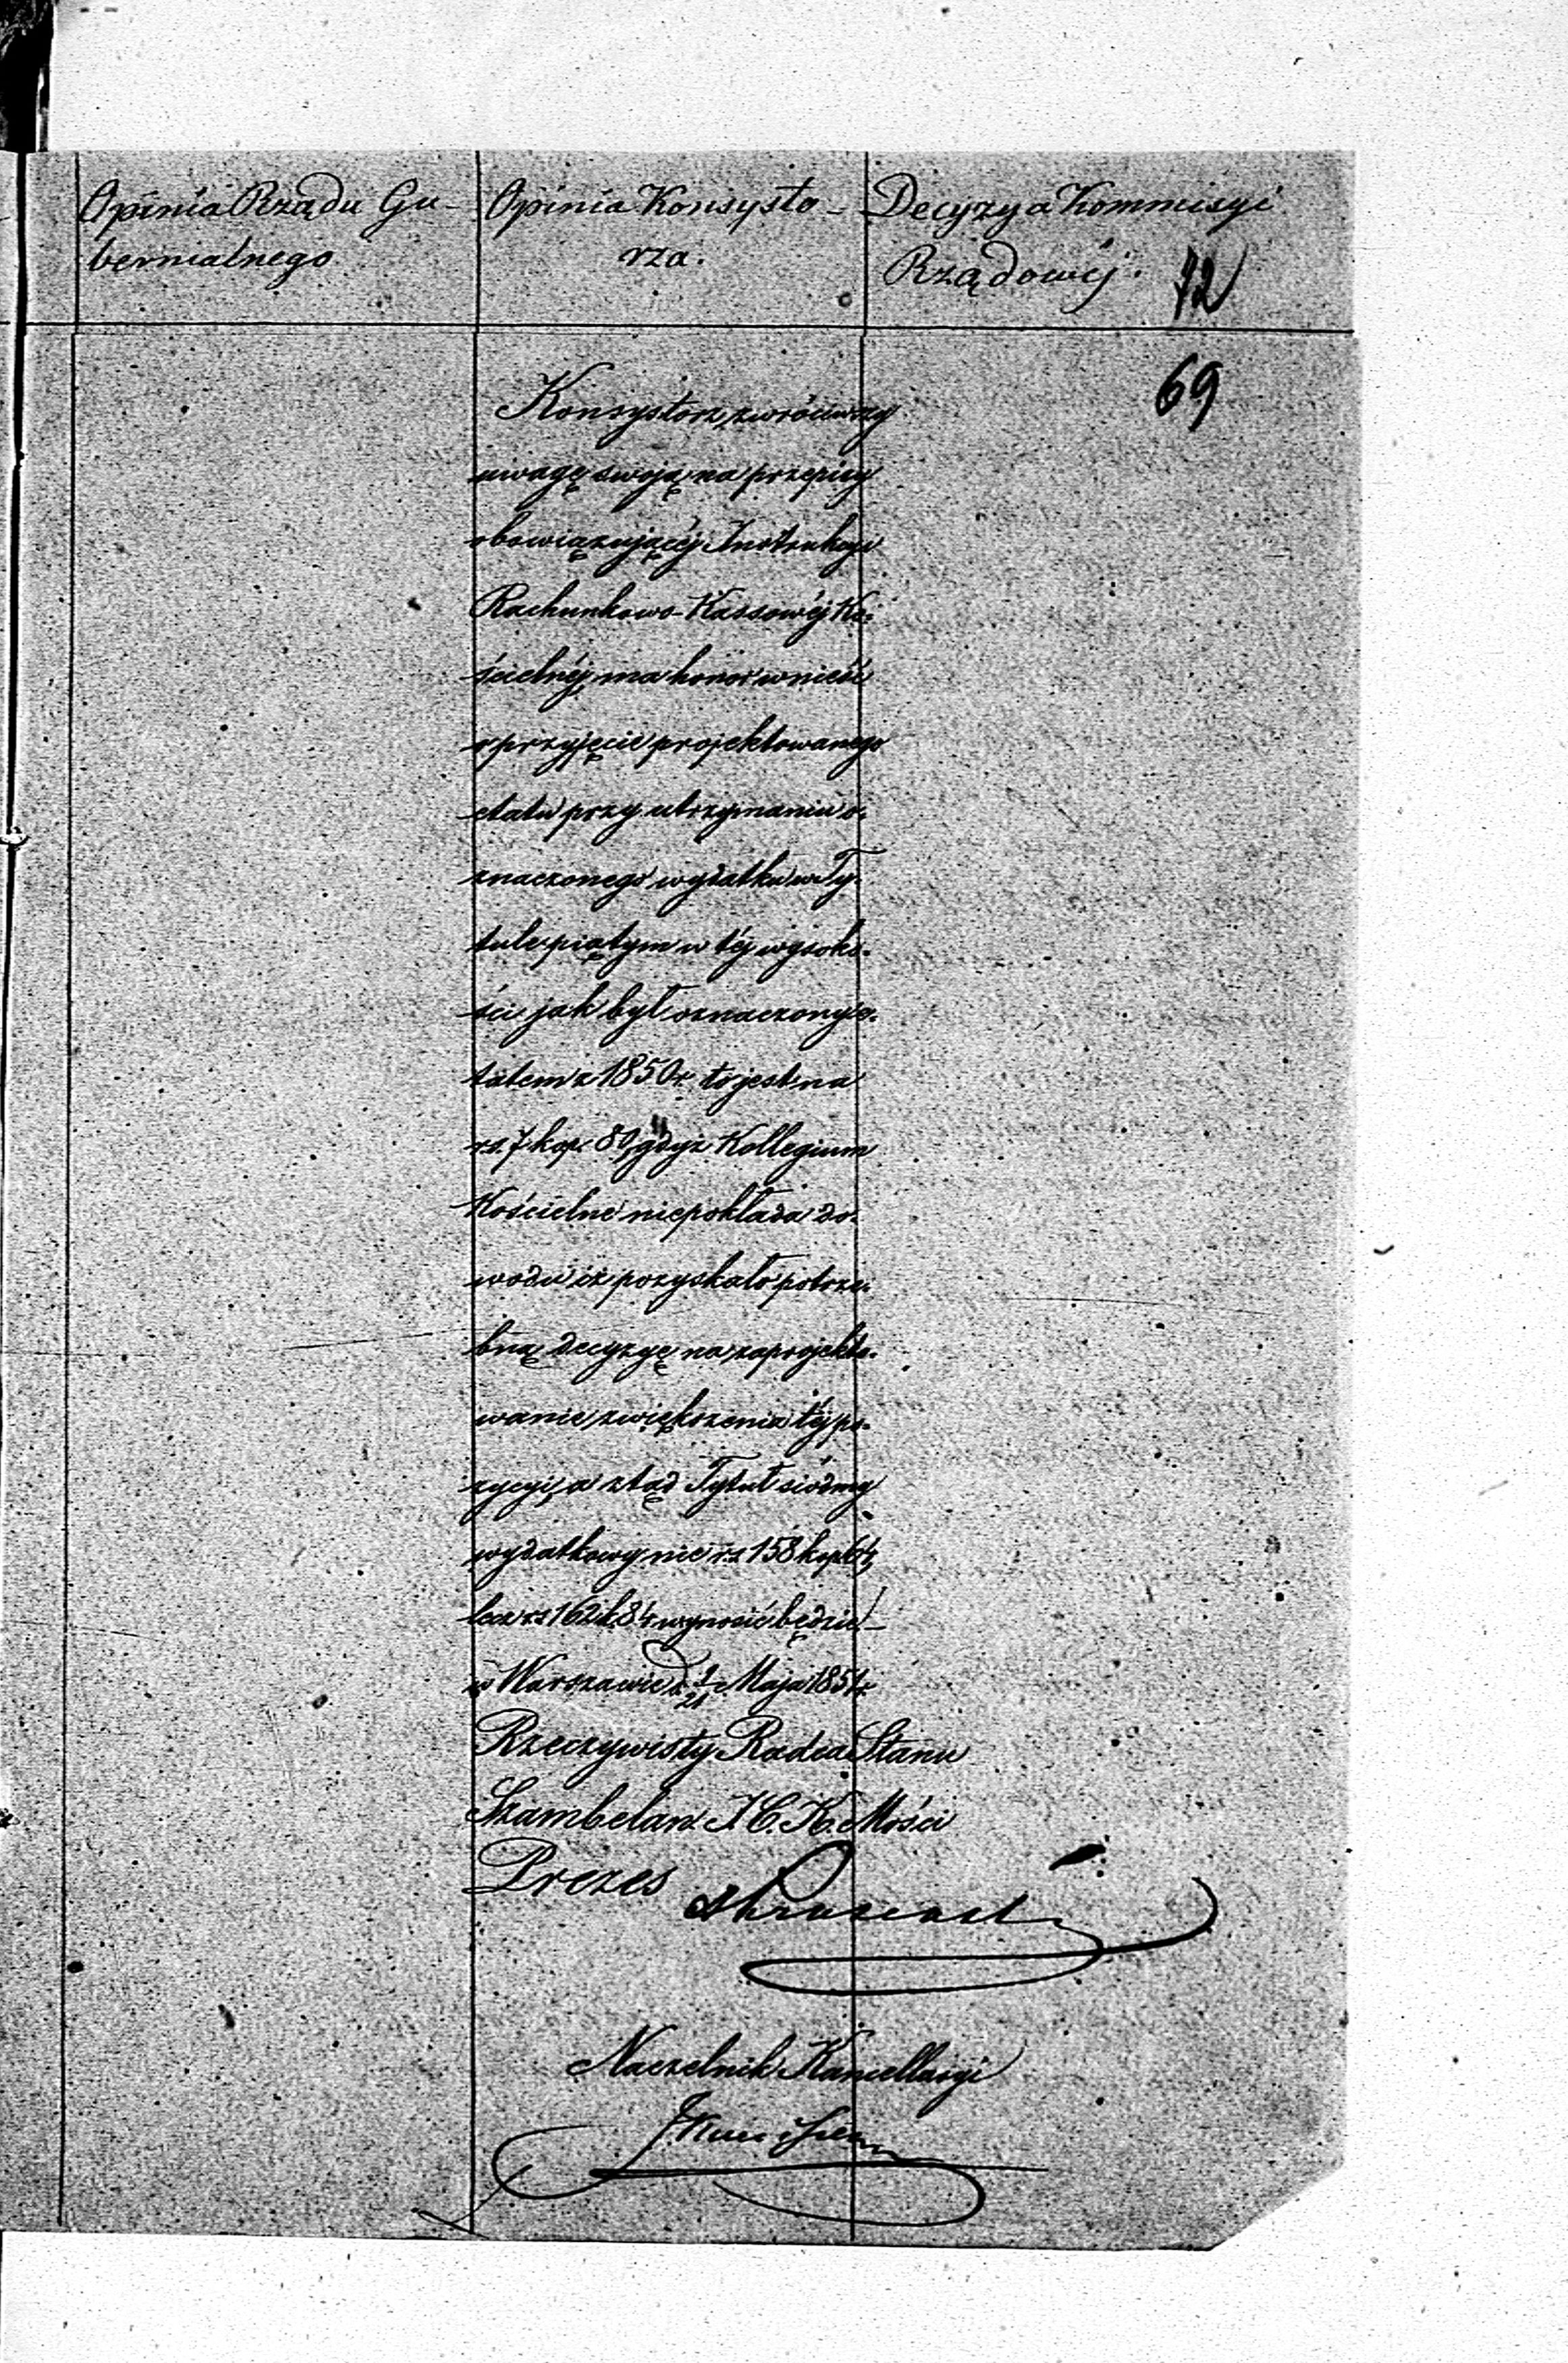 Opinia Rządu Gu-
bernialnego
Opinia Konsysto-
rza.
Decyzya Kommisyi
Rządowéj.
72
69
Konsystorz, zwróciwszy
uwagę swoją na przepisy
obowiązującéj Instrukcyi
Rachunkowo-Kassowéj Ko-
ścielnéj, ma honor wnieść
o przyjęcie projektowanego
etatu przy utrzymaniu o-
znaczonego wydatku w Ty-
tule piątym w téj wysoko-
ści jak był oznaczony e-
tatem z 1850 r. to jest na
rs. 7 kop. 80, gdyż Kollegium
Kościelne niepokłada do-
wodu iż pozyskało potrze-
bną decyzyę na zaprojekto-
wanie zwiększenia téj po-
zycyi, a ztąd Tytuł siódmy
wydatkowy nie rs 158 kop
lecz rs 162 k. 84 wynosić będzie.-
w Warszawie d. 9/21 Maja 1851 r.
Rzeczywisty Radca Stanu
Szambelan J. C. K. Mości
Prezes
Naczelnik Kancellaryi